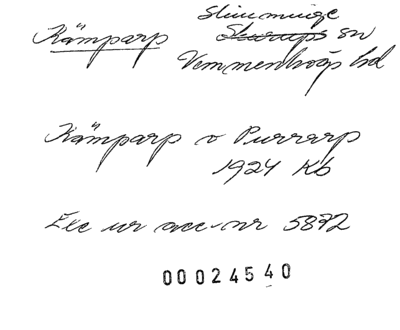 Slimminge
Kämparp Skurups sn
Vemmenhögs hd
Kämparp o Purrarp
1924 Kb
Exc ur acc-nr 5872
00024540